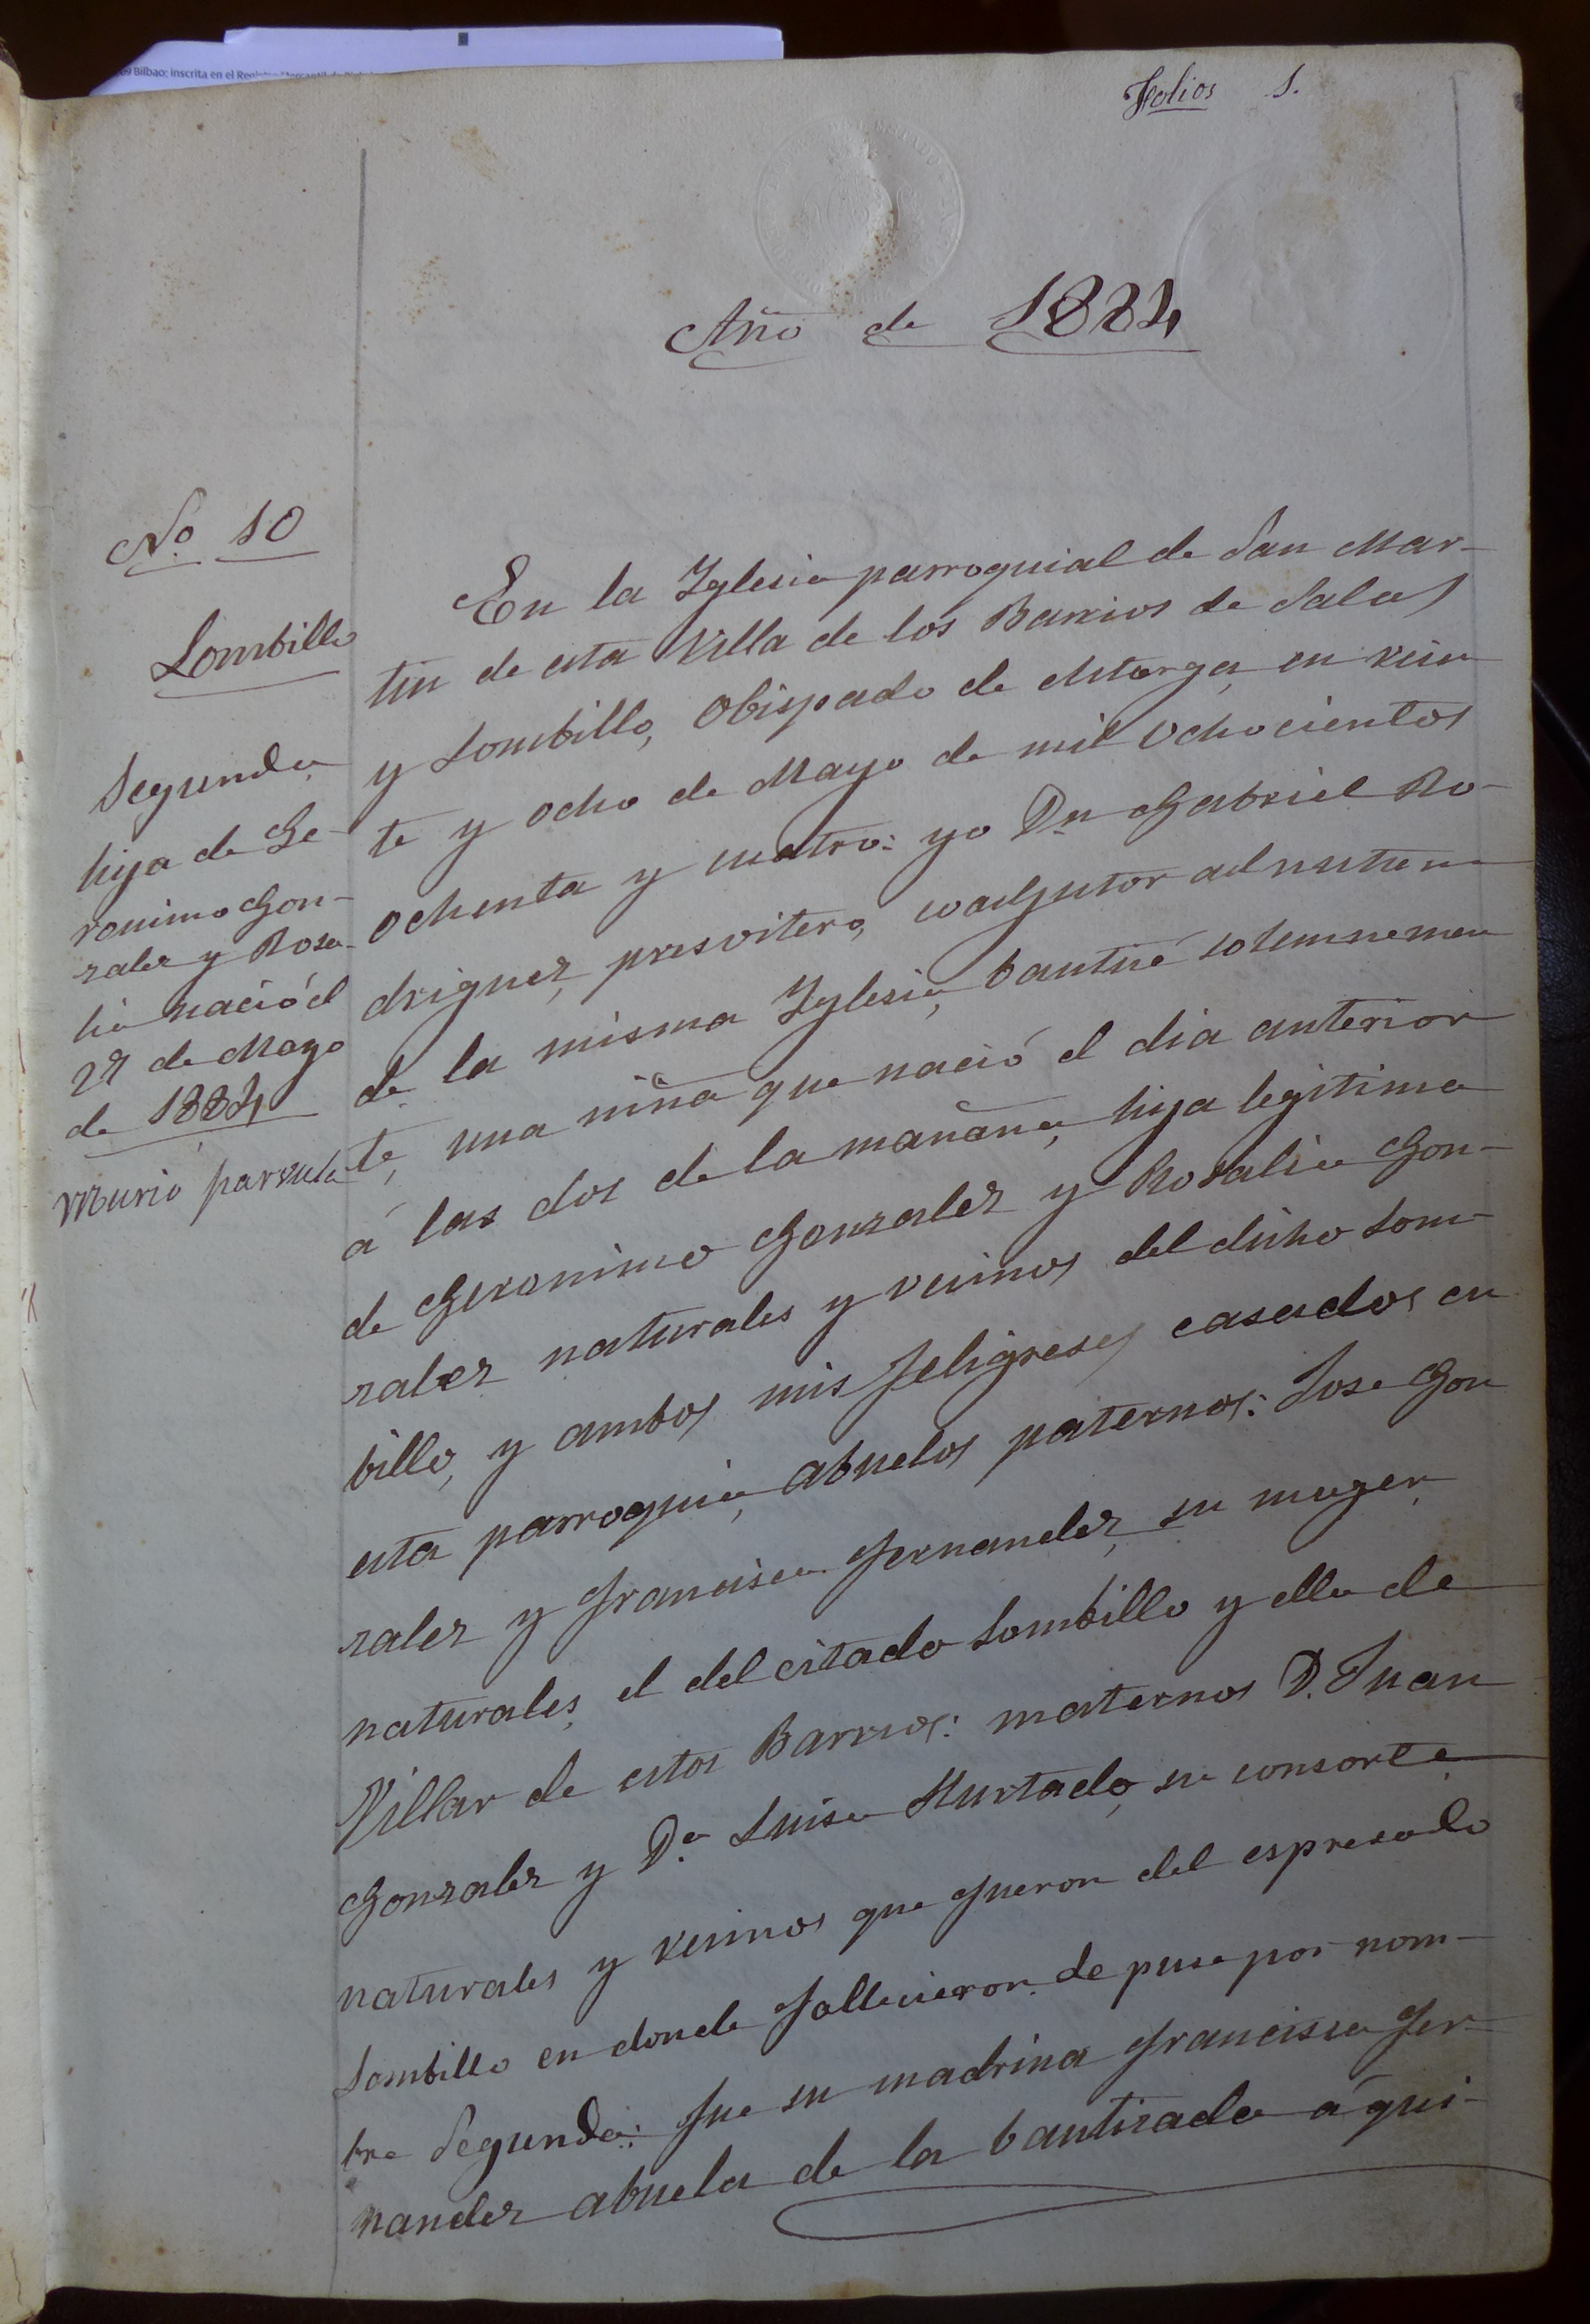 09 Bilbao; inscrita en el Registro Mercantil de
Folios 1.
Año de 1884
No. 10
Lombillo
Segunda
hija de Ge-
ronimo Gon-
zalez y Rosa-
lia nació el
27 de Mayo
de 1884
Murió parvula
En la Yglesia parroquial de San Mar-
tin de esta Villa de los Barrios de Salas
y Lombillo, Obispado de Astorga, en vein
te y ocho de Mayo de mil ochocientos
ochenta y cuatro: yo Dn Gabriel Ro-
driguez, presvitero, coadjutor ad nutum
de la misma Yglesia, bauticé solemnemen
te, una niña que nació el dia anterior
á las dos de la mañana, hija legitima
de Geronimo Gonzalez y Rosalia Gon-
zalez naturales y vecinos del dicho Lom-
billo, y ambos mis feligreses casados en
esta parroquia, abuelos paternos: Jose Gon
zalez y Francisca Fernandez, su muger,
naturales, el del citado Lombillo y ella de
Villar de estos Barrios: maternos D. Juan
Gonzalez y D.a Luisa Hurtado, su consorte,
naturales y vecinos que fueron del espresado
Lombillo en donde fallecieron. le puse por nom-
bre Segunda: fue su madrina Francisca Fer-
nandez abuela de la bautizada á qui-